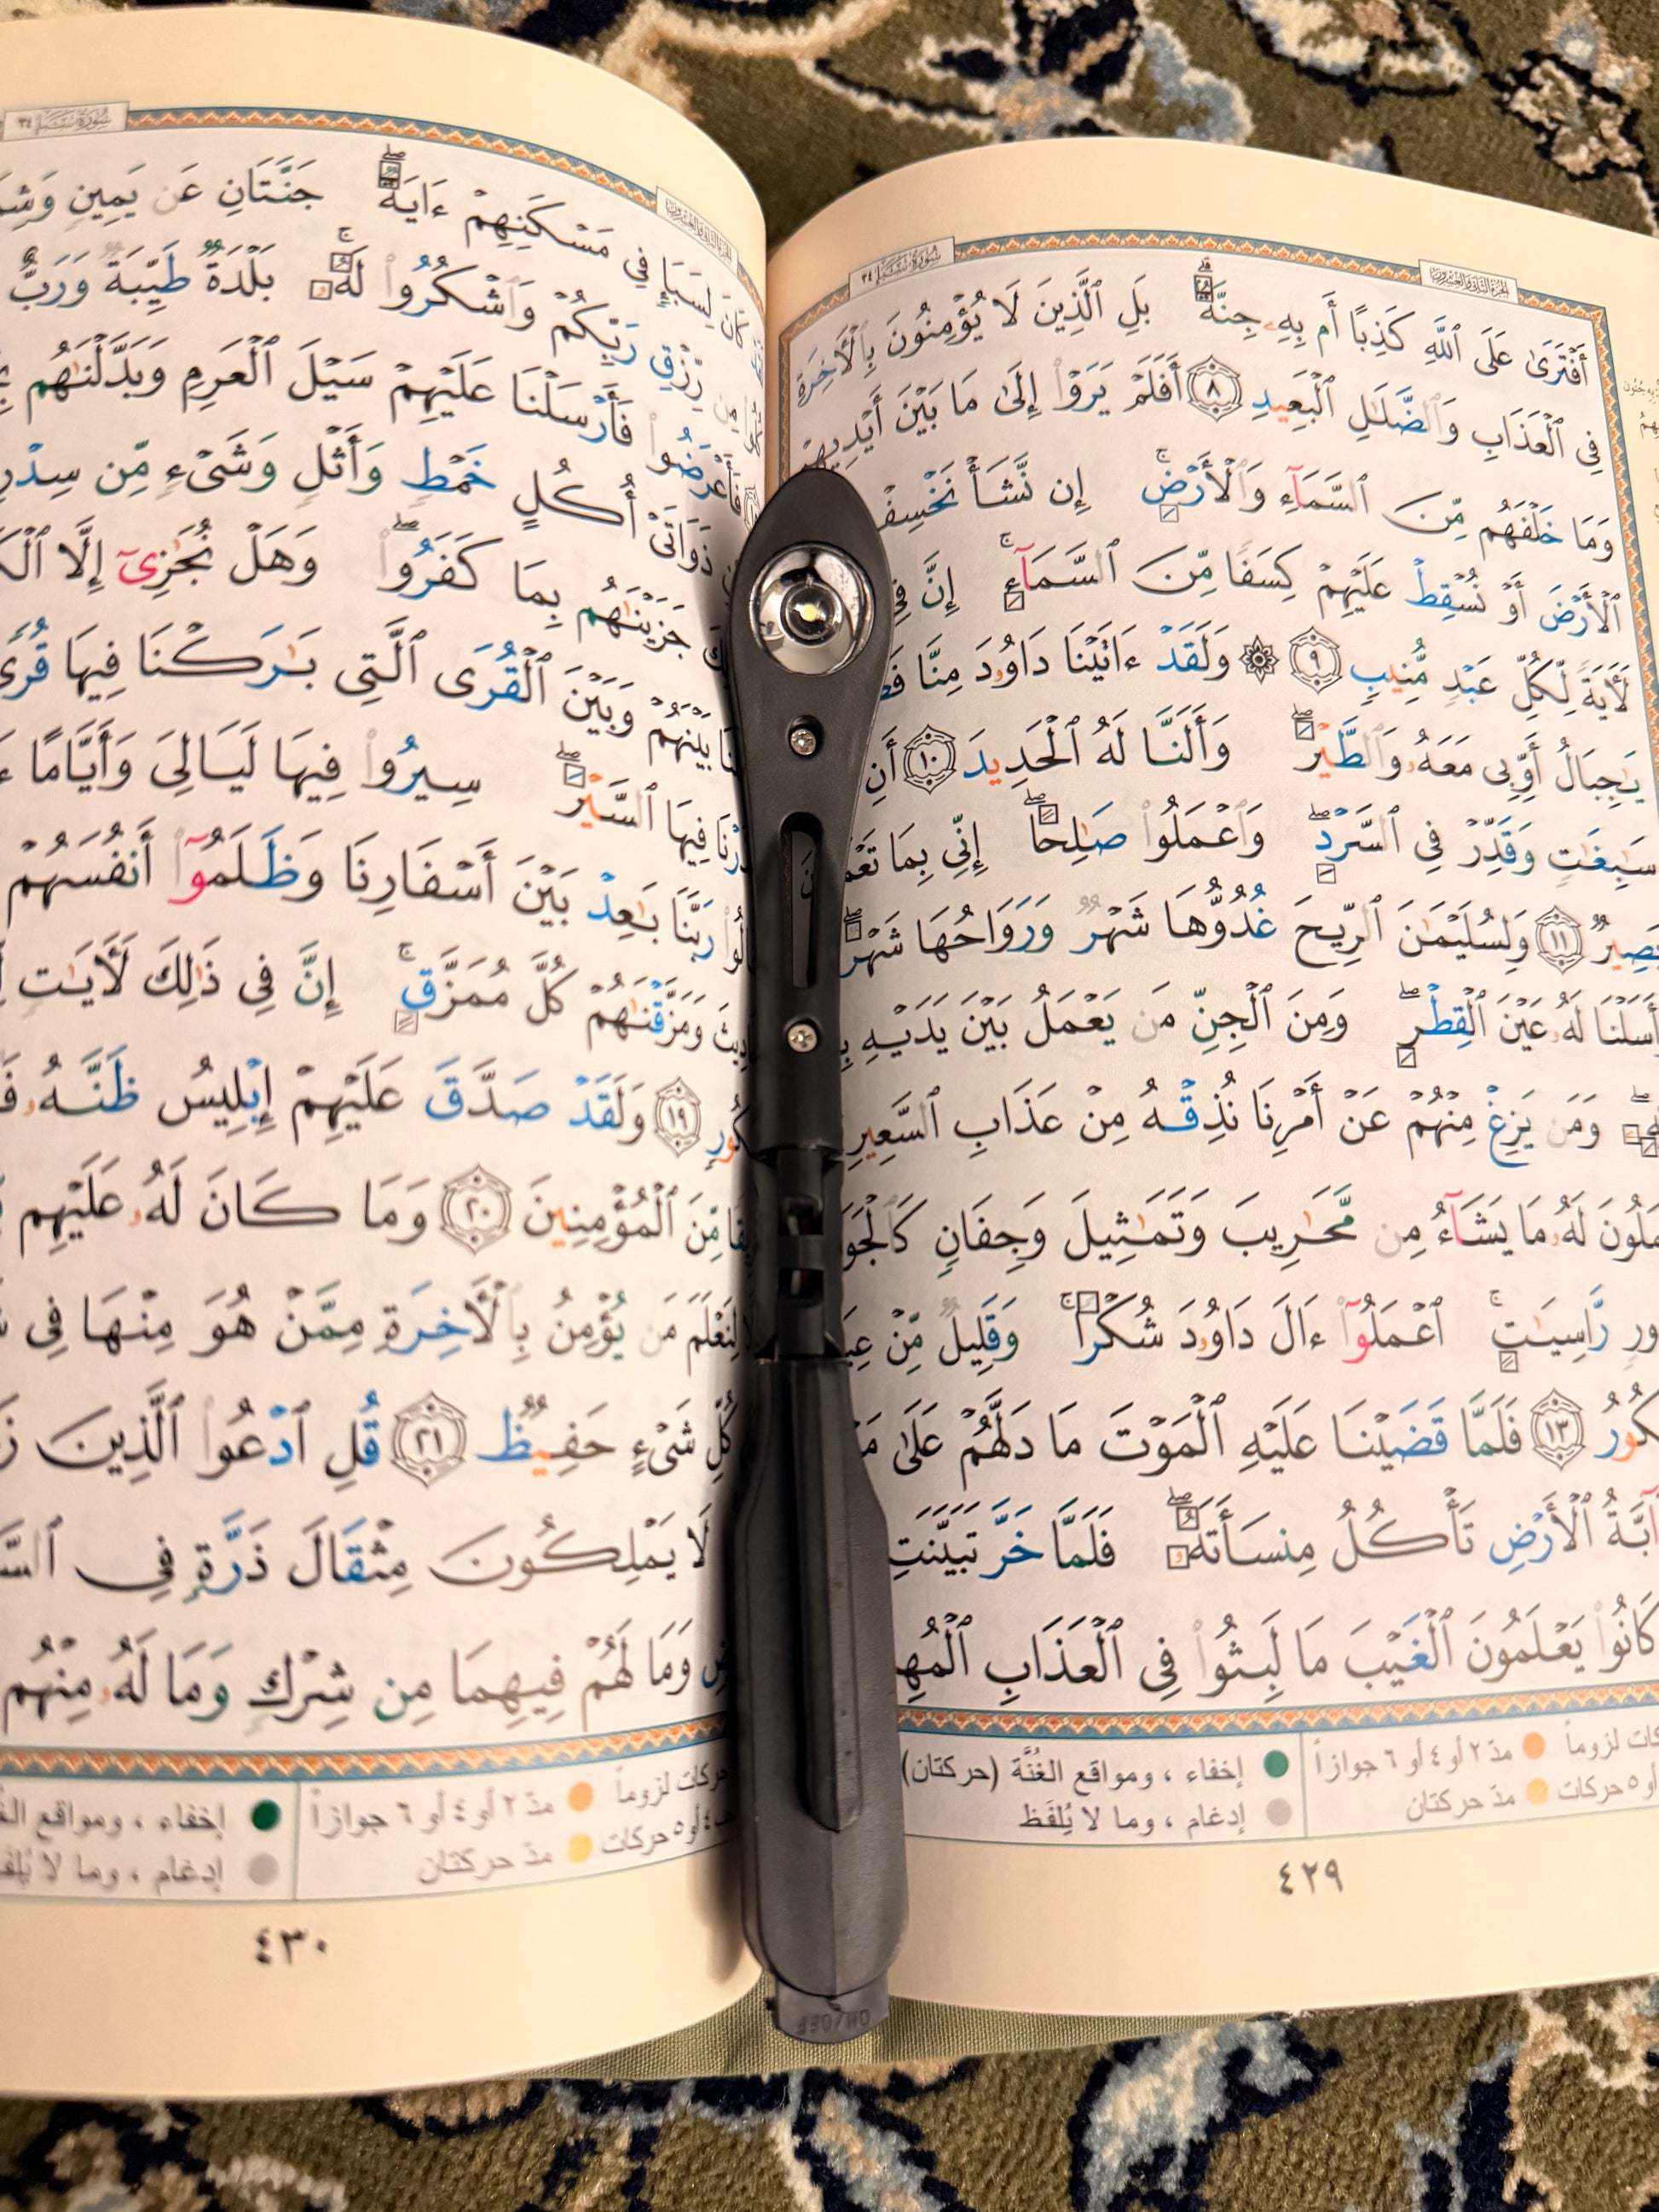 سُورَةُ سَبَإٍ ٣٤
الجزء الثاني والعشرون
أَفْتَرَىٰ عَلَى ٱللَّهِ كَذِبًا أَم بِهِۦ جِنَّةٌۢ بَلِ ٱلَّذِينَ لَا يُؤْمِنُونَ بِٱلْأَخِرَةِ
فِى ٱلْعَذَابِ وَٱلضَّلَٰلِ ٱلْبَعِيدِ ٨ أَفَلَمْ يَرَوْا۟ إِلَىٰ مَا بَيْنَ أَيْدِيهِمْ
وَمَا خَلْفَهُم مِّنَ ٱلسَّمَآءِ وَٱلْأَرْضِ إِن نَّشَأْ نَخْسِفْ
ٱلْأَرْضَ أَوْ نُسْقِطْ عَلَيْهِمْ كِسَفًا مِّنَ ٱلسَّمَآءِ إِنَّ فِى
لَأَيَةً لِّكُلِّ عَبْدٍ مُّنِيبٍ ٩ ۞ وَلَقَدْ ءَاتَيْنَا دَاوُۥدَ مِنَّا
يَٰجِبَالُ أَوِّبِى مَعَهُۥ وَٱلطَّيْرَ وَأَلَنَّا لَهُ ٱلْحَدِيدَ ١٠ أَنِ
سَٰبِغَٰتٍ وَقَدِّرْ فِى ٱلسَّرْدِ وَٱعْمَلُوا۟ صَٰلِحًا إِنِّى بِمَا
بَصِيرٌ ١١ وَلِسُلَيْمَٰنَ ٱلرِّيحَ غُدُوُّهَا شَهْرٌ وَرَوَاحُهَا شَهْرٌ
أَسَلْنَا لَهُۥ عَيْنَ ٱلْقِطْرِ وَمِنَ ٱلْجِنِّ مَن يَعْمَلُ بَيْنَ يَدَيْهِ
وَمَن يَزِغْ مِنْهُمْ عَنْ أَمْرِنَا نُذِقْهُ مِنْ عَذَابِ ٱلسَّعِيرِ
لَهُۥ مَا يَشَآءُ مِن مَّحَٰرِيبَ وَتَمَٰثِيلَ وَجِفَانٍ
رَّاسِيَٰتٍ ٱعْمَلُوٓا۟ ءَالَ دَاوُۥدَ شُكْرًا وَقَلِيلٌ مِّنْ
١٣ فَلَمَّا قَضَيْنَا عَلَيْهِ ٱلْمَوْتَ مَا دَلَّهُمْ عَلَىٰ
ٱلْأَرْضِ تَأْكُلُ مِنسَأَتَهُۥ فَلَمَّا خَرَّ تَبَيَّنَتِ
كَانُوا۟ يَعْلَمُونَ ٱلْغَيْبَ مَا لَبِثُوا۟ فِى ٱلْعَذَابِ
لزوماً مدّ ٢ أو ٤ أو ٦ جوازاً إخفاء ، ومواقع الغُنَّة (حركتان)
أو ٥ حركات مدّ حركتان إدغام ، وما لا يُلفَظ
٤٢٩
سُورَةُ سَبَإٍ ٣٤
كَانَ لِسَبَإٍ فِى مَسْكَنِهِمْ ءَايَةٌ جَنَّتَانِ عَن يَمِينٍ
مِن رِّزْقِ رَبِّكُمْ وَٱشْكُرُوا۟ لَهُۥ بَلْدَةٌ طَيِّبَةٌ وَرَبٌّ
فَأَعْرَضُوا۟ فَأَرْسَلْنَا عَلَيْهِمْ سَيْلَ ٱلْعَرِمِ وَبَدَّلْنَٰهُم
ذَوَاتَىْ أُكُلٍ خَمْطٍ وَأَثْلٍ وَشَىْءٍ مِّن سِدْرٍ
جَزَيْنَٰهُم بِمَا كَفَرُوا۟ وَهَلْ نُجَٰزِىٓ إِلَّا
بَيْنَهُمْ وَبَيْنَ ٱلْقُرَى ٱلَّتِى بَٰرَكْنَا فِيهَا قُرًى
فِيهَا ٱلسَّيْرَ سِيرُوا۟ فِيهَا لَيَالِىَ وَأَيَّامًا
رَبَّنَا بَٰعِدْ بَيْنَ أَسْفَارِنَا وَظَلَمُوٓا۟ أَنفُسَهُمْ
وَمَزَّقْنَٰهُمْ كُلَّ مُمَزَّقٍ إِنَّ فِى ذَٰلِكَ لَأَيَٰتٍ
١٩ وَلَقَدْ صَدَّقَ عَلَيْهِمْ إِبْلِيسُ ظَنَّهُۥ
مِّنَ ٱلْمُؤْمِنِينَ ٢٠ وَمَا كَانَ لَهُۥ عَلَيْهِم
لِنَعْلَمَ مَن يُؤْمِنُ بِٱلْأَخِرَةِ مِمَّنْ هُوَ مِنْهَا فِى
كُلِّ شَىْءٍ حَفِيظٌ ٢١ قُلِ ٱدْعُوا۟ ٱلَّذِينَ
لَا يَمْلِكُونَ مِثْقَالَ ذَرَّةٍ فِى
وَمَا لَهُمْ فِيهِمَا مِن شِرْكٍ وَمَا لَهُۥ مِنْهُم
حركات لزوماً مدّ ٢ أو ٤ أو ٦ جوازاً إخفاء ، ومواقع
٤ أو ٥ حركات مدّ حركتان إدغام ، وما لا
٤٣٠
ON/OFF